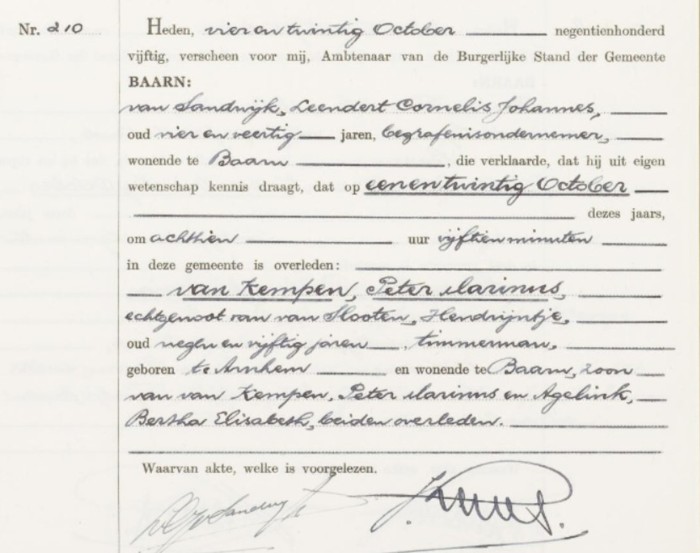 Nr. 210
Heden, vier en twintig October negentienhonderd
vijftig, verscheen voor mij, Ambtenaar van de Burgerlijke Stand der Gemeente
BAARN:
van Sandwijk, Leendert Cornelis Johannes,
oud vier en veertig jaren, begrafenisondernemer,
wonende te Baarn, die verklaarde, dat hij uit eigen
wetenschap kennis draagt, dat op een en twintig October
dezes jaars,
om achttien uur vijftien minuten
in deze gemeente is overleden:
van Kempen, Peter Marinus,
echtgenoot van van Slooten, Hendrijntje,
oud negen en vijftig jaren, timmerman,
geboren te Arnhem en wonende te Baarn, zoon
van van Kempen, Peter Marinus en Agelink,
Bertha Elisabeth, beiden overleden.
Waarvan akte, welke is voorgelezen.